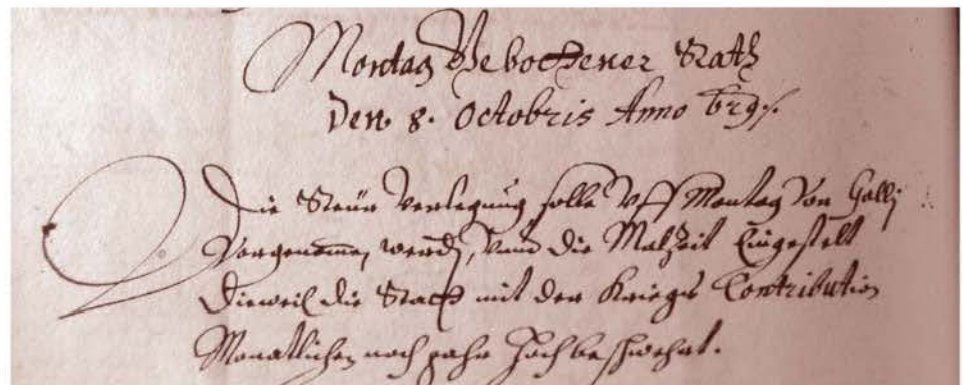 Montag Gebottener Rath
Den 8. Octobris Anno 629.
Die Steür verlegung solle vff Montag von Galli
Vorgenomen werdn, vnnd die Malzeit Eingestelt
Dieweil die Statt mit der Kriegs Contribution
Monatlichen noch gahr hochbeschwehrt.